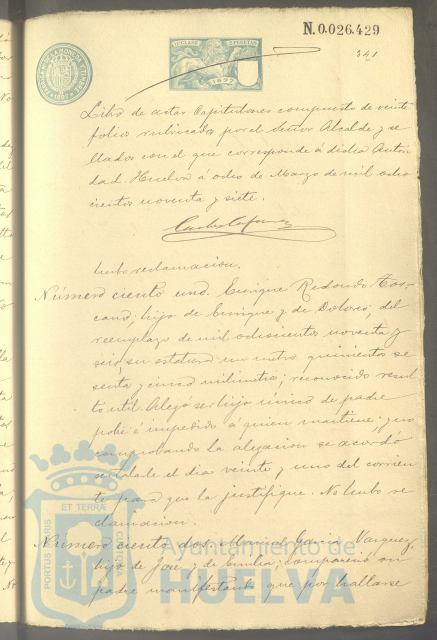 N.0.026.429
11ª CLASE 2 PESETAS
1897
341
Libro de actas Capitulares compuesto de veinte
folios rubricados por el Señor Alcalde y se
llados con el que corresponde á dicha Autori
dad. Huelva á ocho de Marzo de mil ocho
cientos noventa y siete.
hubo reclamacion.
Número ciento uno. Enrique Redondo Tos-
cano; hijo de Enrique y de Dolores, del
reemplazo de mil ochocientos noventa y
seis, su estatura un metro quinientos se
senta y cinco milimetros; reconocido resul
tó util. Alegó ser hijo único de padre
pobre é impedido á quien mantiene; y no
comprobando la alegacion se acordó
señalarle el dia veinte y uno del corrien
te para que la justifique. No hubo re
clamacion.
Número ciento dos. Manuel Garcia Vazquez,
hijo de José y de Emilia; compareció su
padre manifestando que por hallarse
PORTUS MARIS ET TERRAE CUSTODIA
Ayuntamiento de
HUELVA